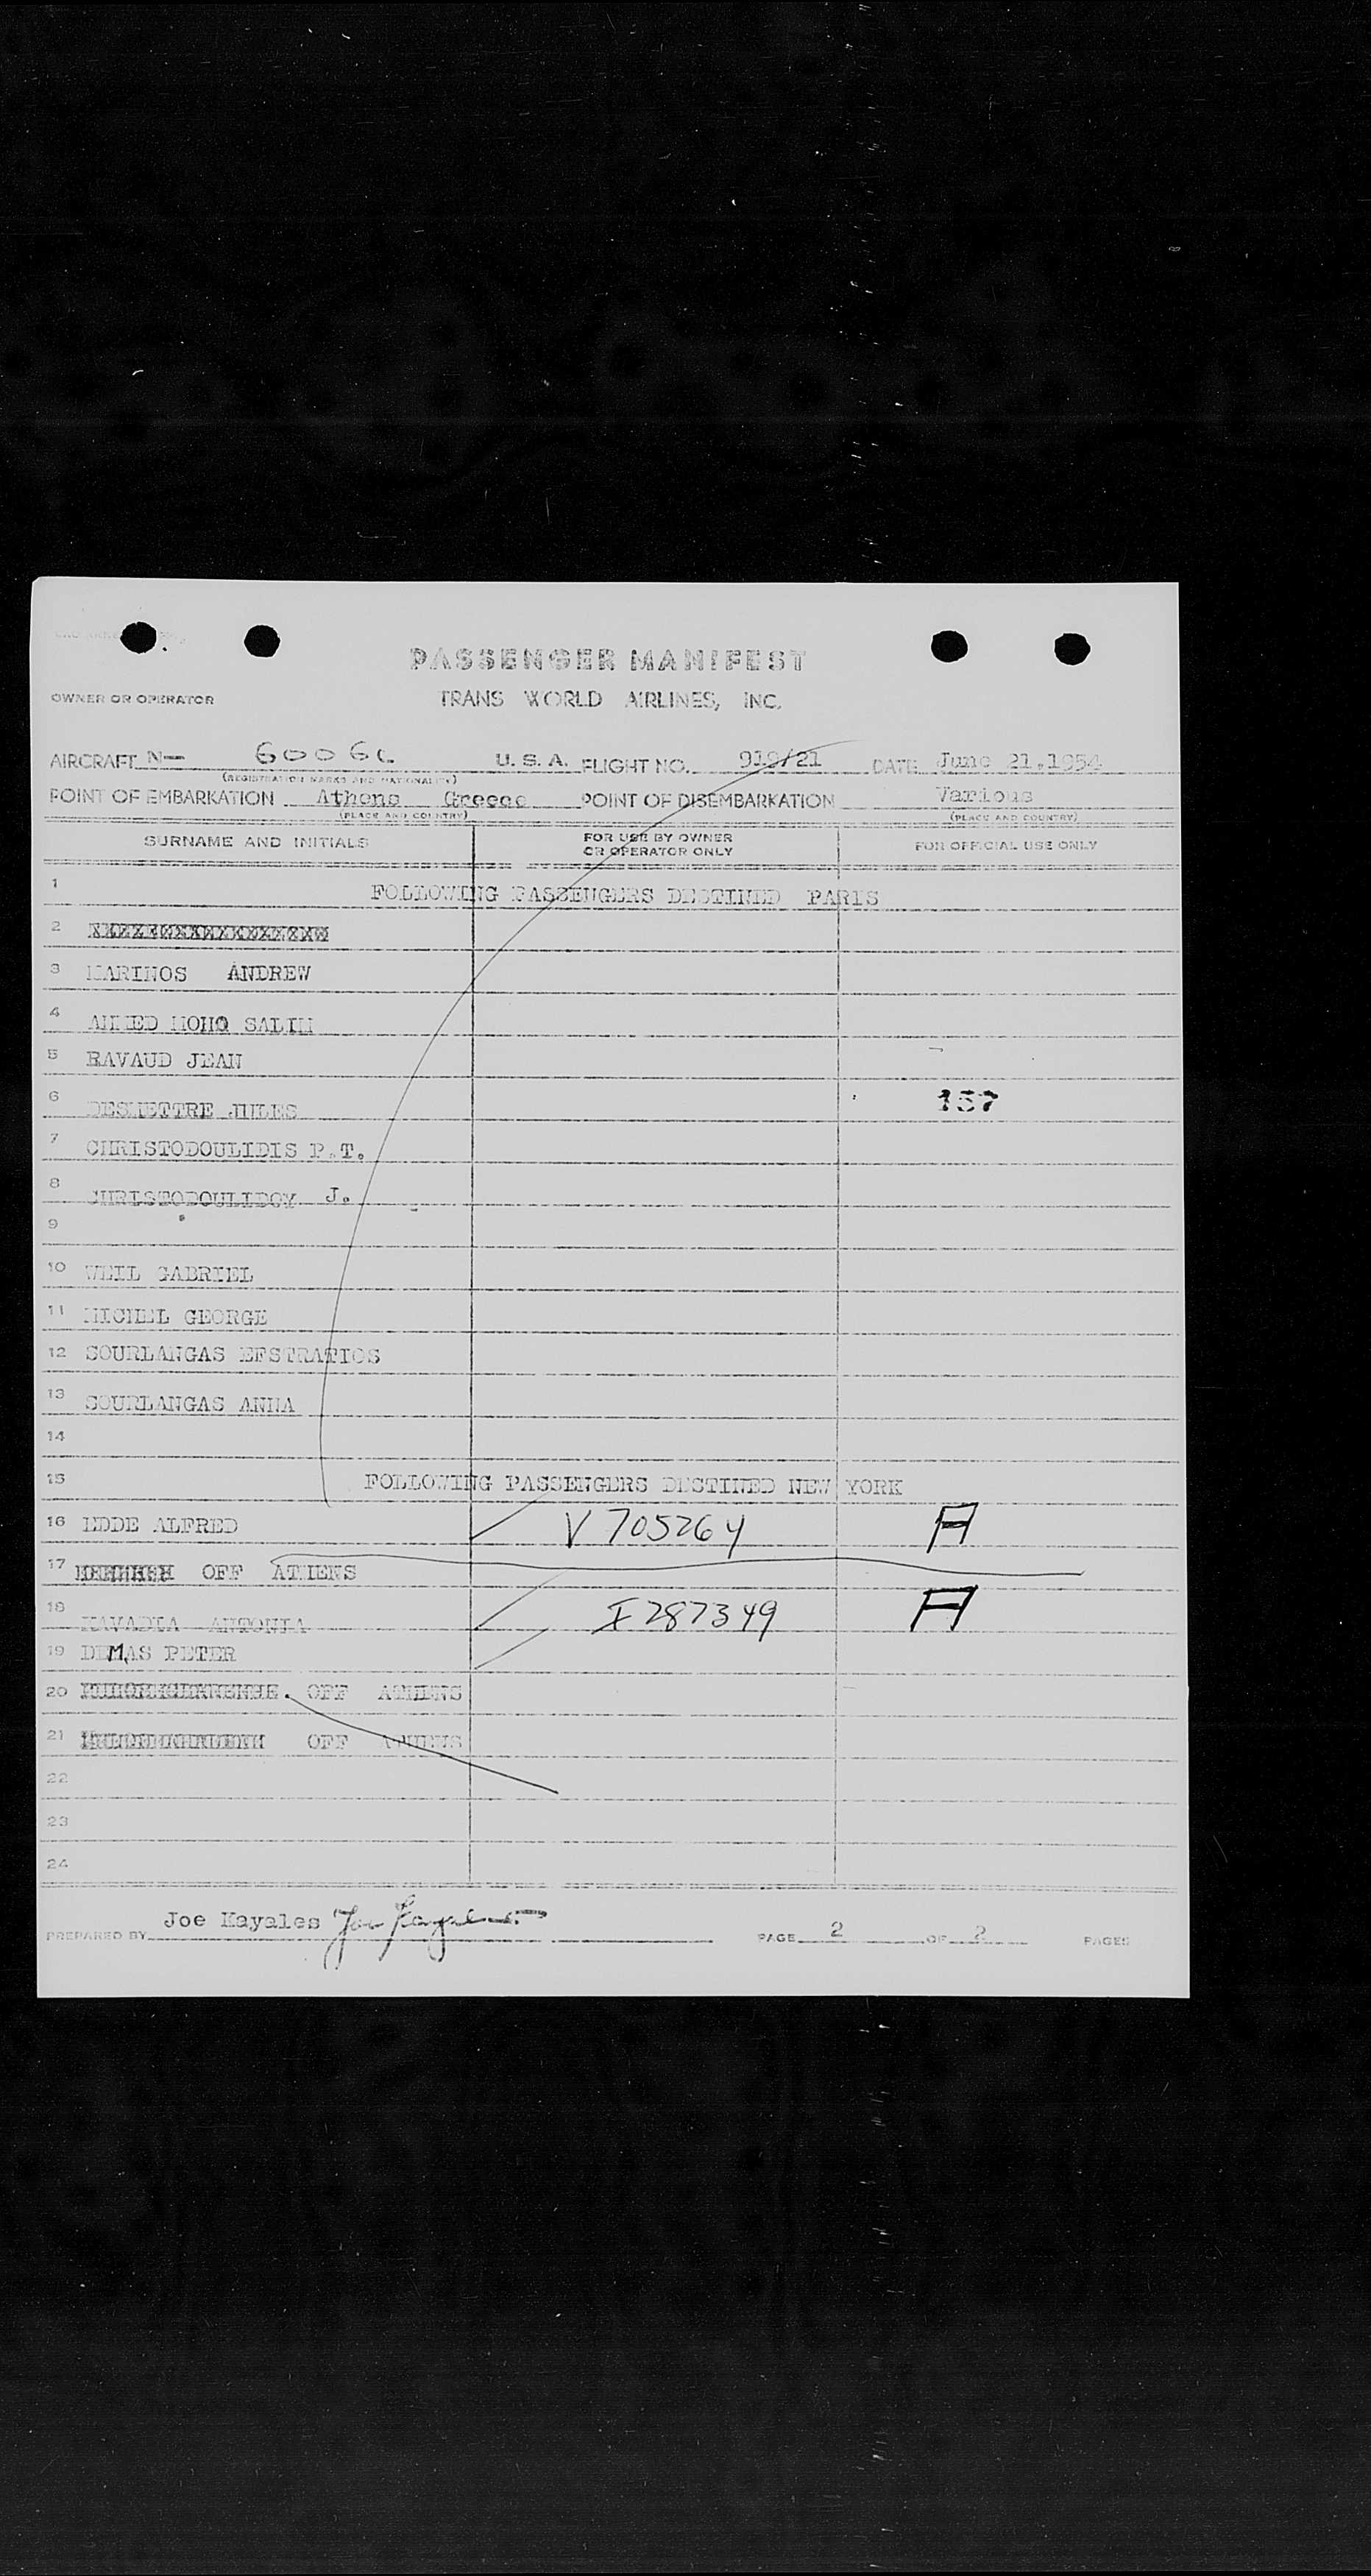 PASSENGER MANIFEST
OWNER OR OPERATOR TRANS WORLD AIRLINES, INC.
AIRCRAFT N- 6006C U. S. A. FLIGHT NO. 919/21 DATE June 21.1954
(REGISTRATION MARKS AND NATIONALITY)
POINT OF EMBARKATION Athens Greece POINT OF DISEMBARKATION Various
(PLACE AND COUNTRY) (PLACE AND COUNTRY)
SURNAME AND INITIALS FOR USE BY OWNER OR OPERATOR ONLY FOR OFFICIAL USE ONLY
1 FOLLOWING PASSENGERS DESTINED PARIS
2
3 MARINOS ANDREW
4 AHMED MOHD SALIM
5 RAVAUD JEAN
6 DESMETTRE JULES 157
7 CHRISTODOULIDIS P.T.
8 CHRISTODOULIDOY J.
9
10 WEIL GABRIEL
11 MICHEL GEORGE
12 SOURLANGAS EFSTRATIOS
13 SOURLANGAS ANNA
14
15 FOLLOWING PASSENGERS DESTINED NEW YORK
16 EDDE ALFRED V 705264 A
17 OFF ATHENS
18 KAVADIA ANTONIA I 287349 A
19 DEMAS PETER
20 OFF ATHENS
21 OFF ATHENS
22
23
24
PREPARED BY Joe Kayales PAGE 2 OF 2 PAGES